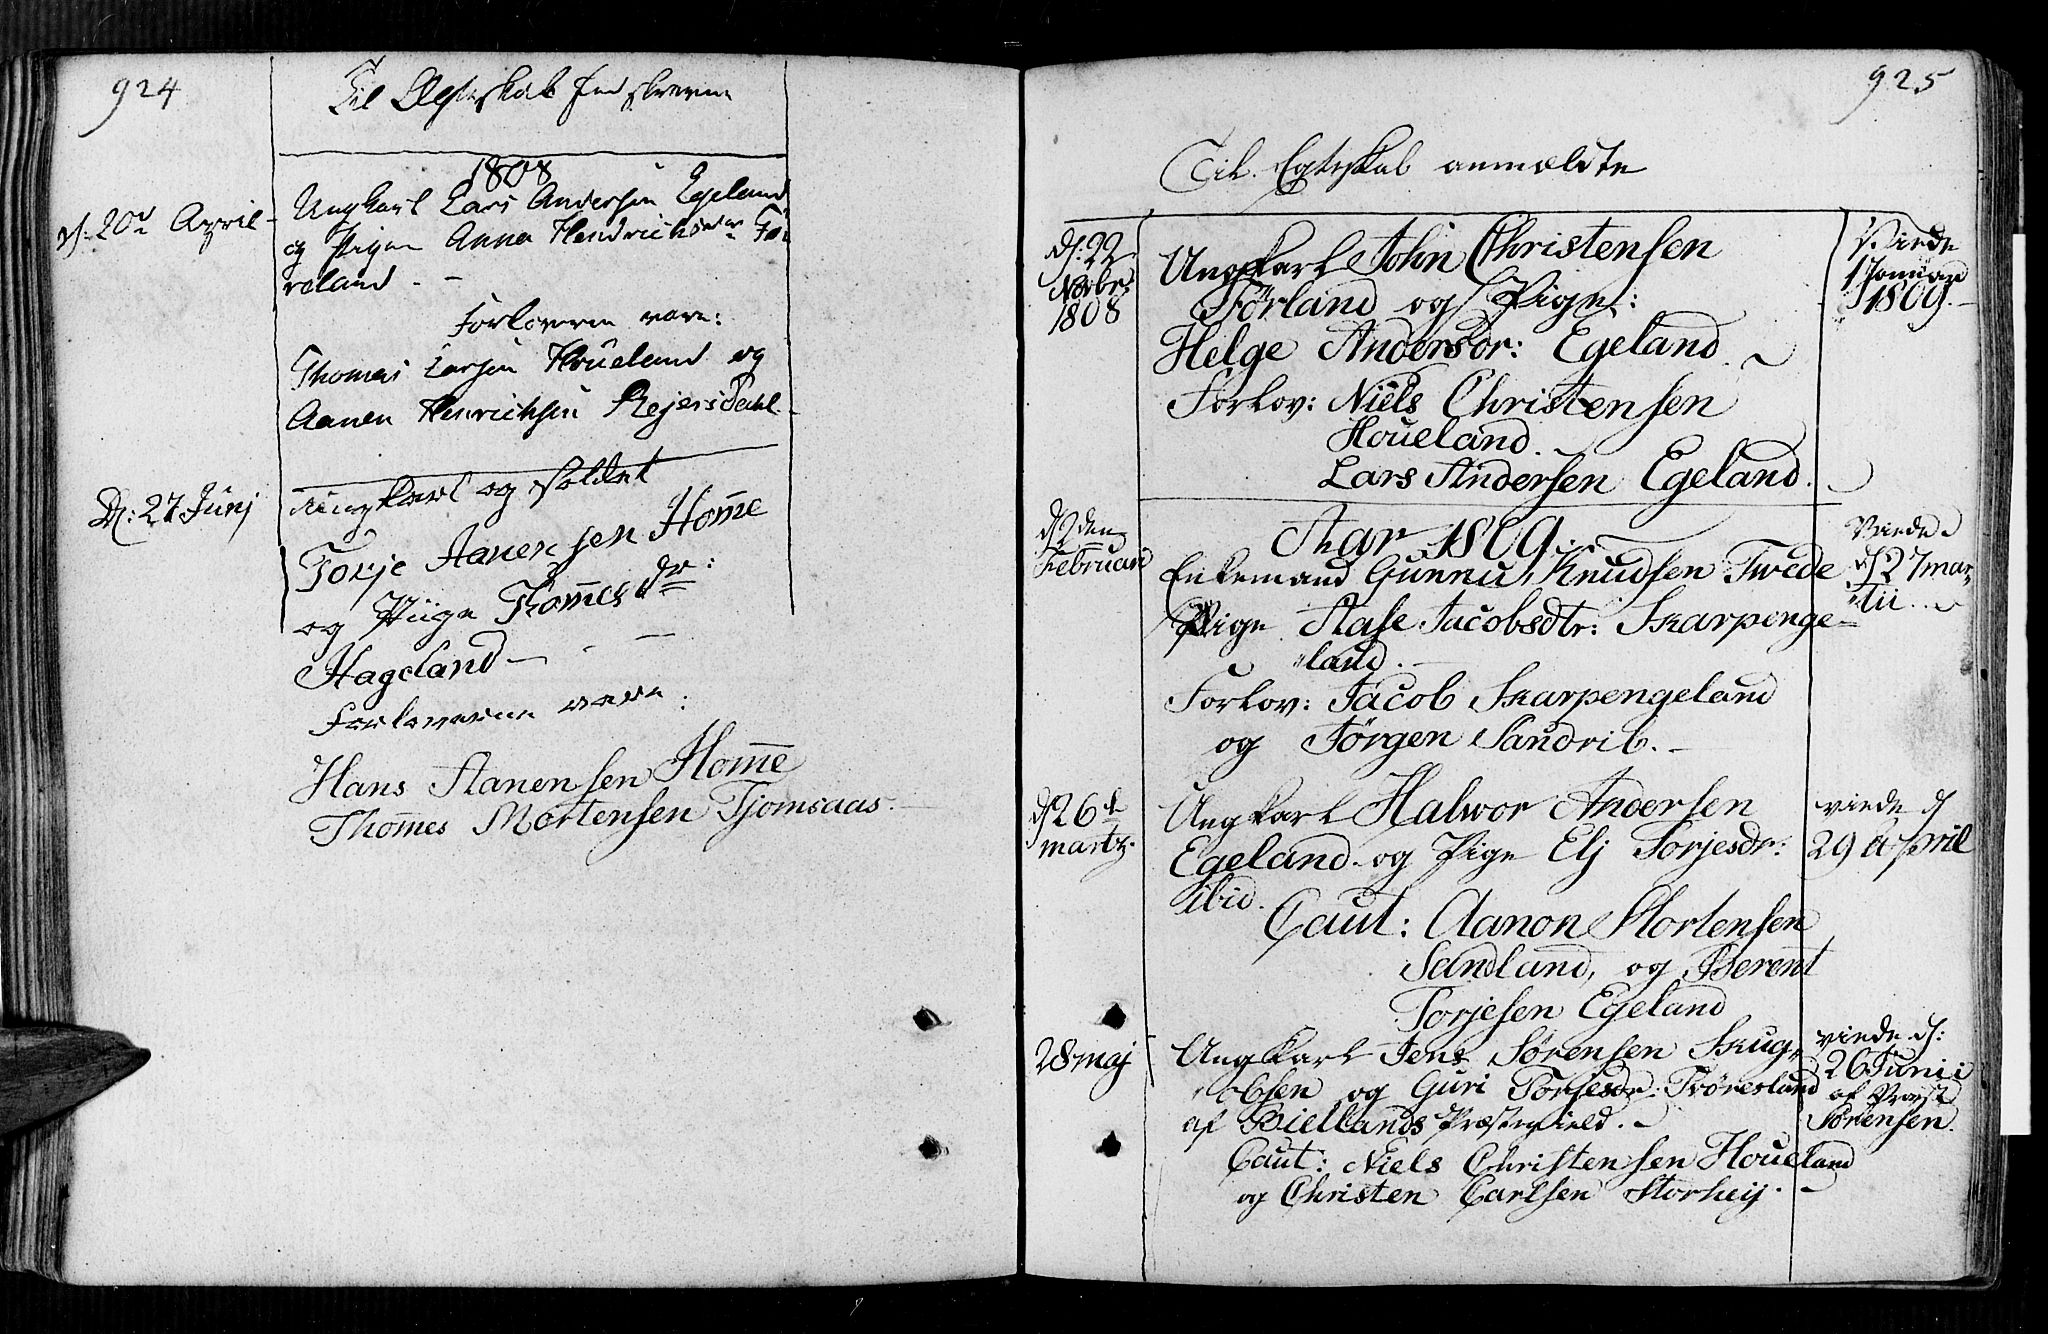 924
Til Egteskab indskrevne
1808
d: 20de April -
Ungkarl Lars Andersen Egeland
og Pigen Anna Hendrichsdr
reland. -
Forloverne vare:
Thomas Larsen Houeland og
Aanen Henrichsen Rejersdahl.
D: 27 Junj
Ungkarl og Soldat
Torje Aanensen Home
og Piige Thomesdr:
Hageland -
Forloverne vare:
Hans Aanensen Home
Thomes Mortensen Tjomsaas.
925
Til Egteskab anmældte
d: 22
Novbr:
1808
Ungkarl John Christensen
Förland og Pige:
Helge Andersdr: Egeland.
Forlov: Niels Christensen
Houeland.
Lars Andersen Egeland.
Viede
1 Januar
1809.
Aar 1809.
d 2den
Februari
Enkemand Gunnu Knudsen Twede
Pige Aase Jacobsdtr: Skarpenge-
land.
Forlov: Jacob Skarpengeland
og Jörgen Sandrib.
Viede
d 27 mar-
tii.
d 26de
martz.
Ungkarl Halwor Andersen
Egeland og Pige Elj Torjesdr:
ibid.
Caut: Aanon Mortensen
Sandland, og Berent
Torjesen Egeland
viede d
29 April
28 maj
Ungkarl Jens Sörensen Skug-
olsen og Guri Torjesdr: Trönesland
af Biellands Præstegield.
Caut: Niels Christensen Houeland
og Christen Carlsen Storheij.
viede d:
26 Junii
af Præst
Sörensen.